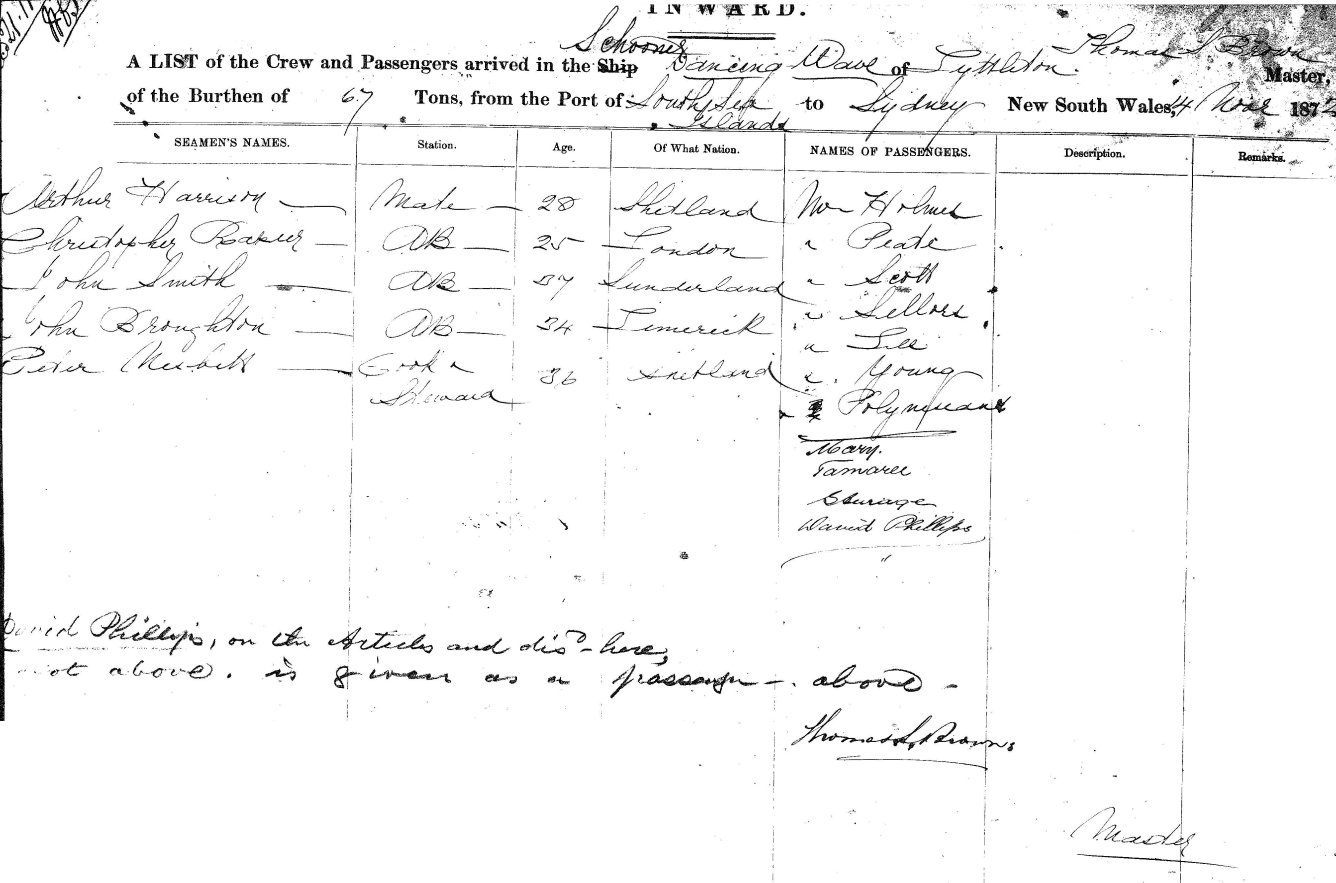 INWARD.
Schooner
A LIST of the Crew and Passengers arrived in the Ship Dancing Wave of Lyttleton Thomas S Brown Master,
of the Burthen of 67 Tons, from the Port of South Sea Islands to Sydney New South Wales, 4 187
SEAMEN'S NAMES. Station. Age. Of What Nation. NAMES OF PASSENGERS. Description. Remarks.
Arthur Harrison — Mate — 28 Shetland Mr Holmes
Christopher — AB — 25 — London " Peate
John Smith — AB — 37 Sunderland " Scott
John Broughton — AB — 34 — Limerick " Sellors
" Lee
Peter Nesbitt — Cook & Steward 36 Shetland " Young
Polynesians
Mary.
Tamaree
David Phillips
"
David Phillips, on the Articles and disd here,
not above. is given as a passenger - above -
Thomas S. Brown
Master